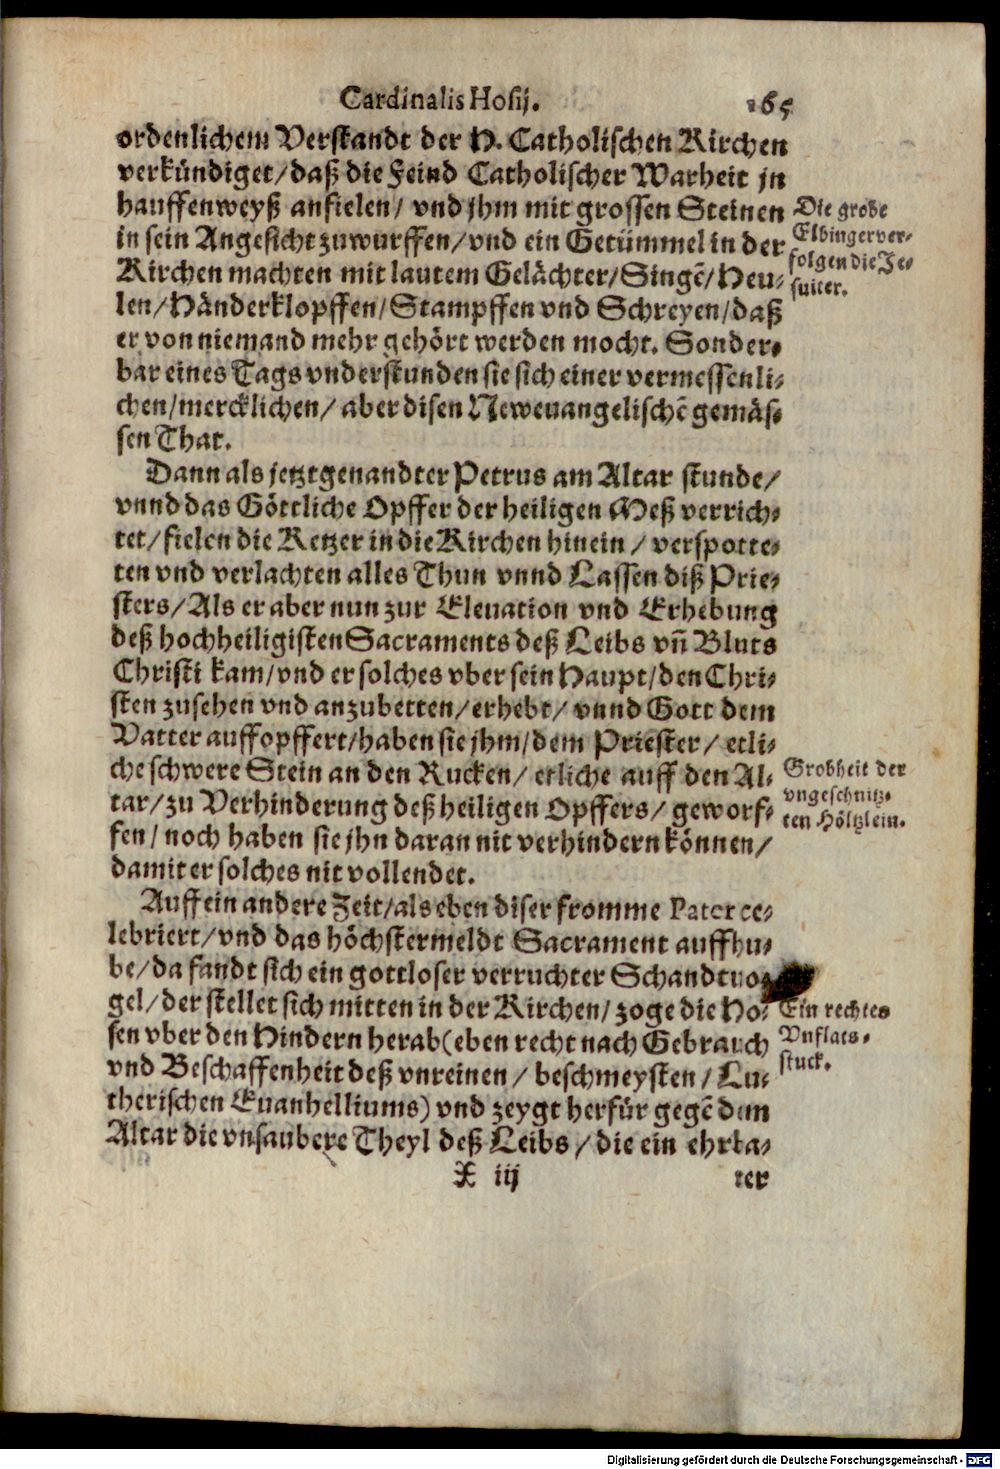 Cardinalis Hosij. 165
ordenlichem Verstandt der H. Catholischen Kirchen
verkündiget/daß die Feind Catholischer Warheit jn
hauffenweyß anfielen/ vnd jhm mit grossen Steinen
in sein Angesicht zuwurffen/vnd ein Getümmel in der
Kirchen machten mit lautem Gelächter/Singē/Heu-
len/Händerklopffen/Stampffen vnd Schreyen/daß
er von niemand mehr gehört werden mocht. Sonder-
bar eines Tags vnderstunden sie sich einer vermessenli-
chen/mercklichen/ aber disen Neweuangelischē gemäs-
sen That.
Die grobe
Elbinger ver-
folgen die Je-
suiter.
Dann als jetztgenandter Petrus am Altar stunde/
vnnd das Göttliche Opffer der heiligen Meß verrich-
tet/fielen die Ketzer in die Kirchen hinein / verspotte-
ten vnd verlachten alles Thun vnnd Lassen diß Prie-
sters/Als er aber nun zur Eleuation vnd Erhebung
deß hochheiligisten Sacraments deß Leibs vñ Bluts
Christi kam/vnd er solches vber sein Haupt/den Chri-
sten zusehen vnd anzubetten/erhebt/ vnnd Gott dem
Vatter auffopffert/haben sie jhm/dem Priester/ etli-
che schwere Stein an den Rucken/ etliche auff den Al-
tar/zu Verhinderung deß heiligen Opffers/ geworf-
fen/ noch haben sie jhn daran nit verhindern können/
damit er solches nit vollendet.
Grobheit der
vngeschnitz-
ten Höltzlein.
Auff ein andere Zeit/als eben diser fromme Pater ce-
lebriert/vnd das höchstermeldt Sacrament auffhu-
be/da fandt sich ein gottloser verruchter Schandtuo-
gel/der stellet sich mitten in der Kirchen/zoge die Ho-
sen vber den Hindern herab(eben recht nach Gebrauch
vnd Beschaffenheit deß vnreinen / beschmeysten/Lu-
therischen Euanhelliums) vnd zeygt herfür gegē dem
Altar die vnsaubere Theyl deß Leibs /die ein ehrba-
Ein rechtes
Vnflats-
stuck.
X iij rer
Digitalisierung gefördert durch die Deutsche Forschungsgemeinschaft - DFG